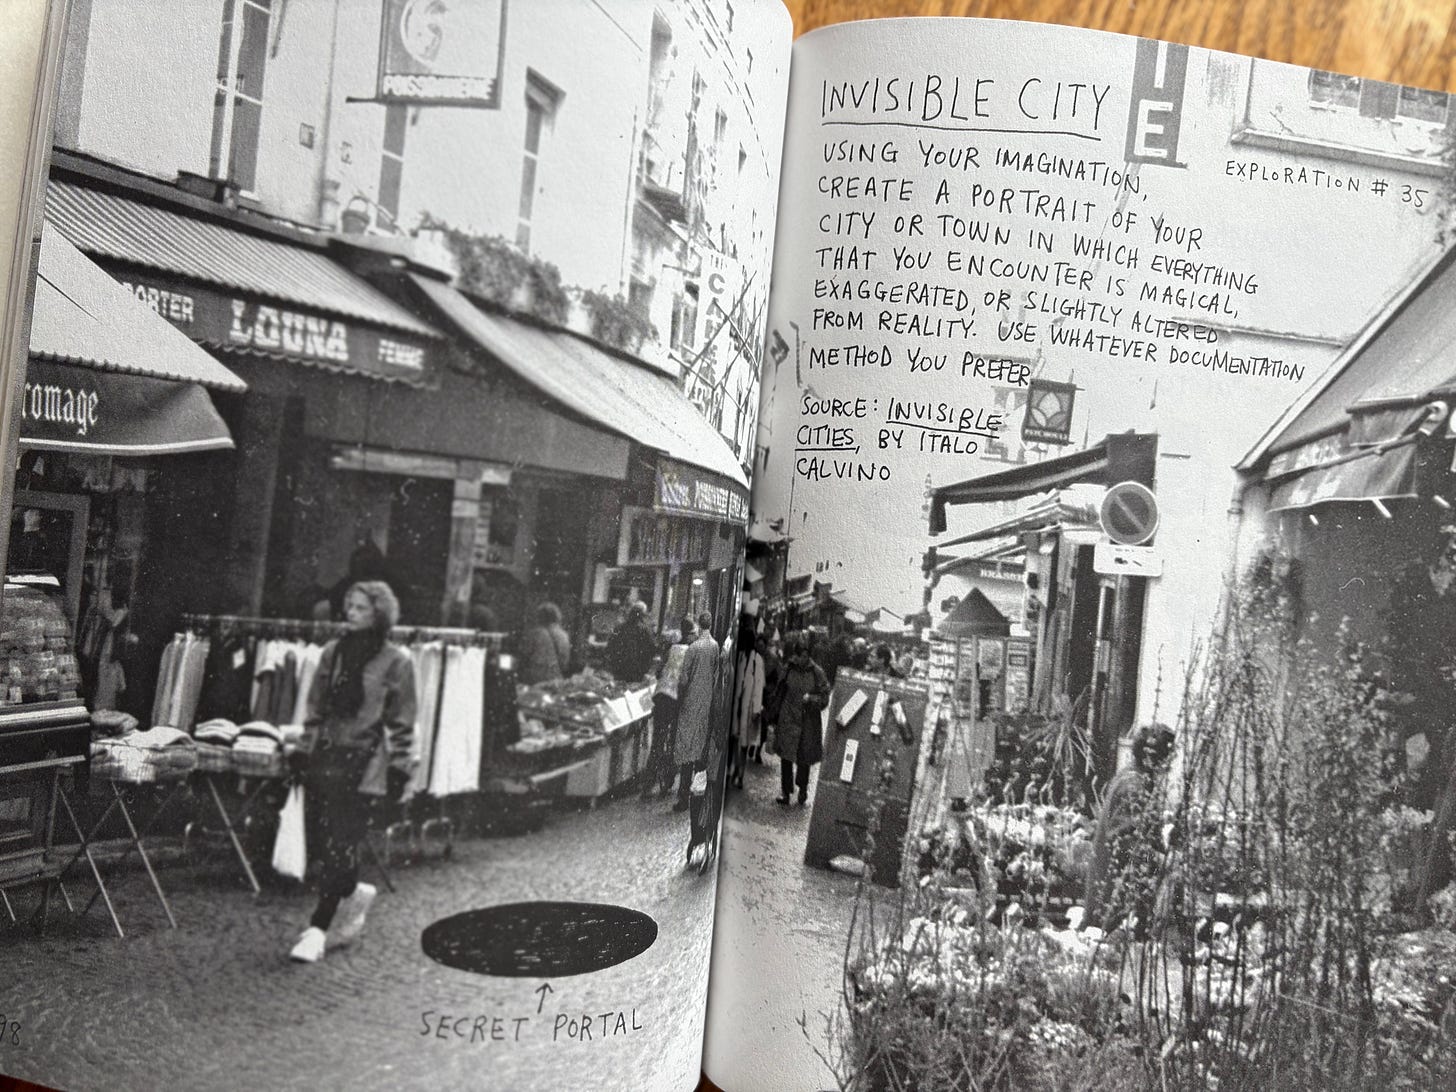 POISSONNERIE
PORTER LOUNA FEMME
romage
SECRET PORTAL
98
IE
INVISIBLE CITY
EXPLORATION # 35
USING YOUR IMAGINATION,
CREATE A PORTRAIT OF YOUR
CITY OR TOWN IN WHICH EVERYTHING
THAT YOU ENCOUNTER IS MAGICAL,
EXAGGERATED, OR SLIGHTLY ALTERED
FROM REALITY. USE WHATEVER DOCUMENTATION
METHOD YOU PREFER
SOURCE: INVISIBLE
CITIES, BY ITALO
CALVINO